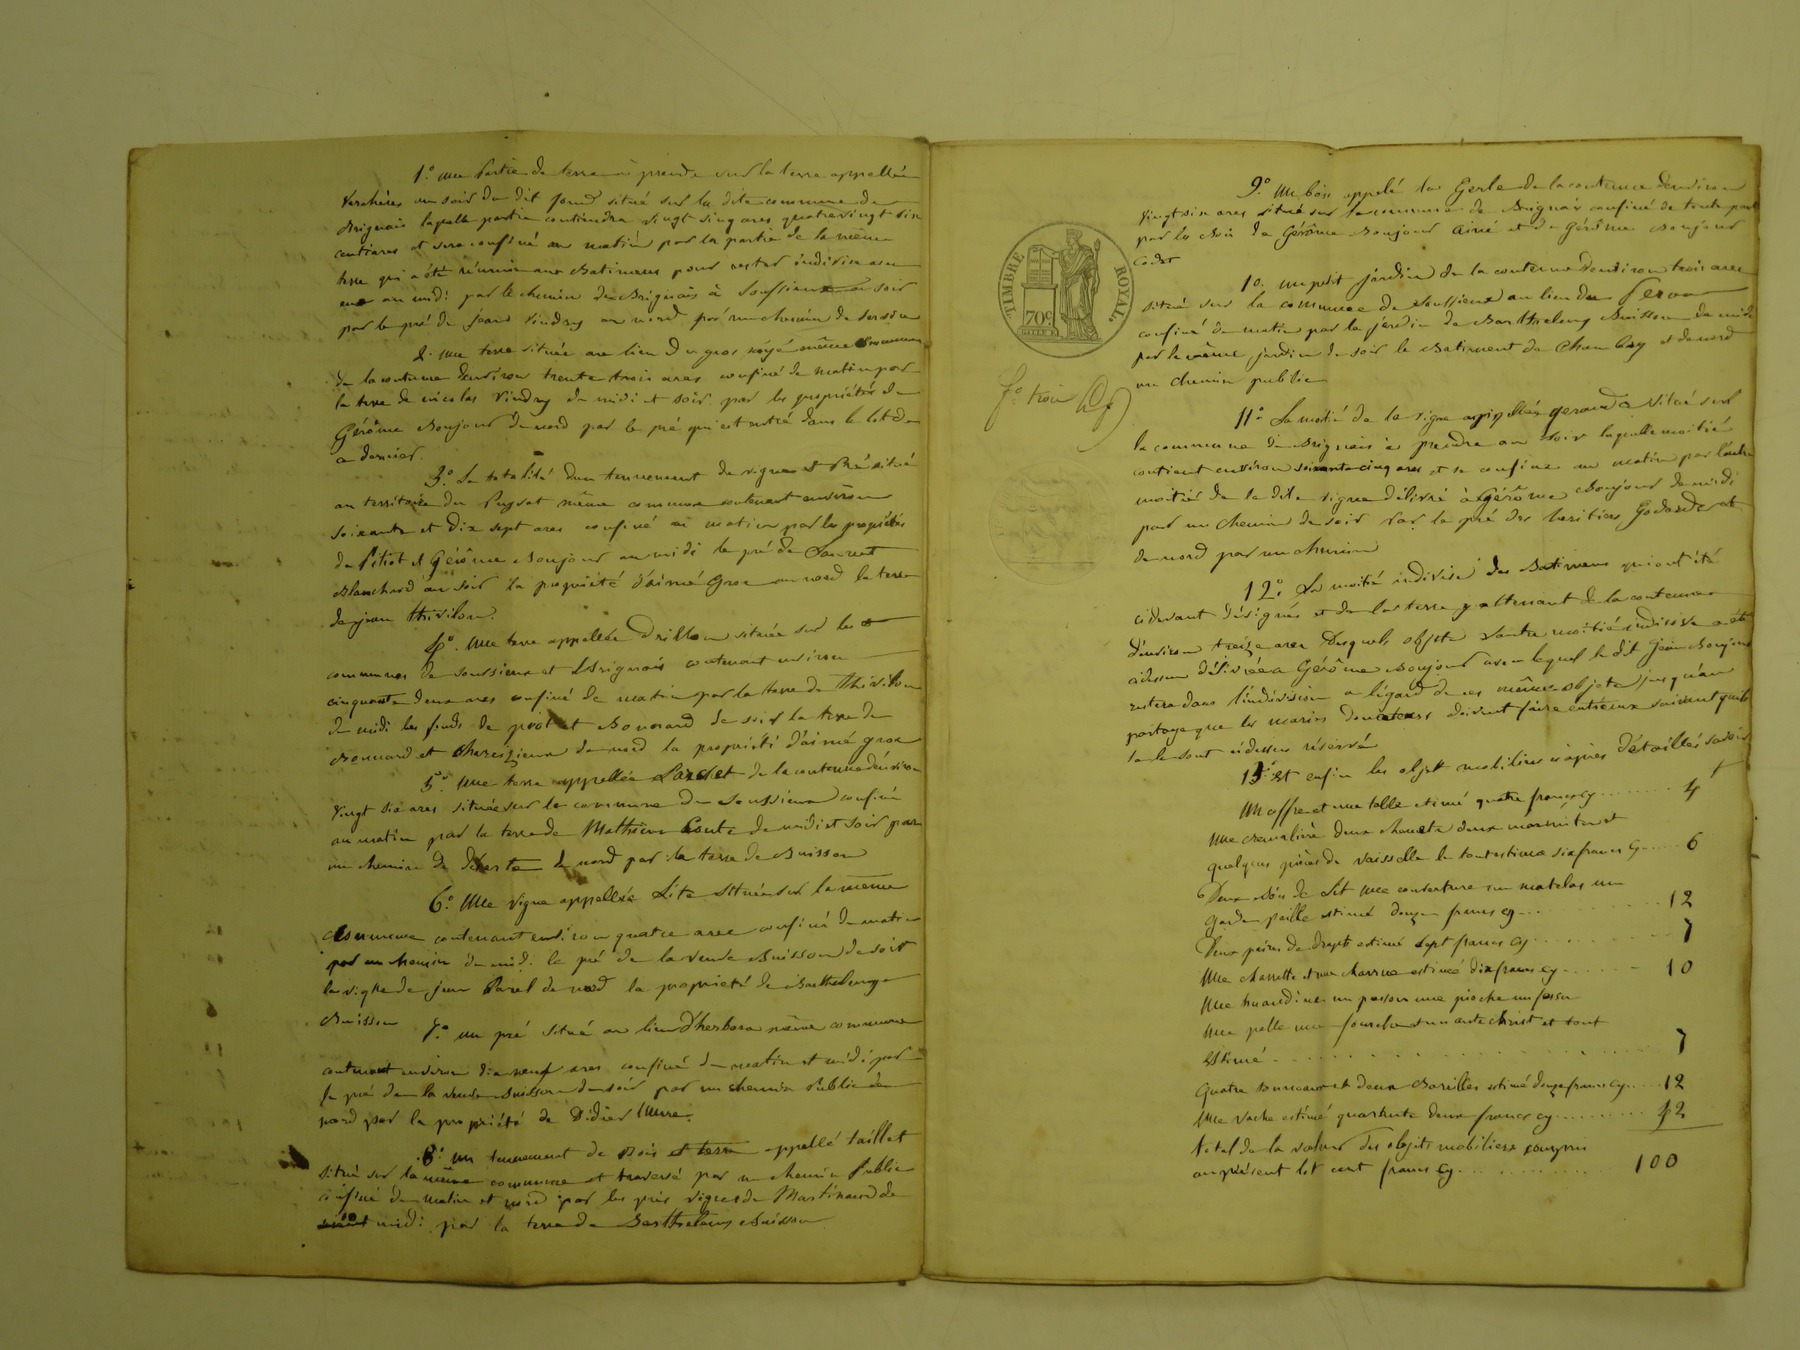 1.° une Partie de terre à prendre sur la terre appellée
Verchères au soir du dit fond situé sur la dite commune de
Brignais laquelle partie contiendra vingt cinq ares quatre vingt six
centiares et sera confiné au matin par la partie de la même
terre qui a été réunie aux Batimens pour rester indivise
au midi par le chemin de Brignais à Soussieux au soir
par le pré de jean Vindry au nord par un chemin de
2.° une terre située au lieu du gros même commune
de la contenue denviron trente trois ares confiné de matin par
la terre de nicolas Vindry de midi et soir par les propriétés de
Gérôme Bonjour de nord par le pré qui est entré dans le lot de
ce dernier.
3.° La totalité dun tennement de vigne et Pré situé
au territoire du même commune contenant environ
soixante et dix sept ares confiné au matin par les propriétés
de Pitiot et Gérôme Bonjour au midi le pré de Laurent
Blanchard au soir la propriété d'aimé gros au nord la terre
de jean thivillon.
4.° une terre appellée Drillon située sur les
communes de Soussieux et Brignais contenant environ
cinquante deux ares confiné de matin par la terre de Thivillon
de midi les fonds de et Bonnard de soir la terre de
Bonnard et de nord la propriété d'aimé gros
5.° une terre appellée de la contenue denviron
vingt six ares située sur la commune de Soussieux confiné
au matin par la terre de Mathieu de midi et soir par
un chemin de de nord par la terre de Buisson
6.° une vigne appellée Lite située sur la même
commune contenant environ quatre ares confiné de matin
par un chemin de midi le pré de la veuve Buisson de soir
la vigne de jean de nord la propriété de Barthelemy
Buisson 7.° un pré situé au lieu Dherbora même commune
contenant environ dix neuf ares confiné de matin et midi par
le pré de la veuve Buisson de soir par un chemin Public de
nord par la propriété de Didier
8.° un tennement de Bois et terre appellé taillet
situé sur la même commune et traversé par un chemin Public
confiné de matin et nord par les prés vignes de Martinaud de
midi par la terre de Barthelemy Buisson
TIMBRE ROYAL
70c
f.° trois
9.° un bois appelé la Gerle de la contenue denviron
vingt six ares situé sur la commune de Brignais confiné de toute part
par les Bois de Gérôme Bonjour ainé et de Gérôme Bonjour
Cadet
10. un petit jardin de la contenue denviron trois ares
situé sur la commune de Soussieux au lieu du
confiné de matin par le jardin de Barthelemy Buisson de midi
par le même jardin de soir le Batiment de et de nord
un chemin public
11.° La moitié de la vigne appellée situé sur
la commune de Brignais à prendre au soir laquelle moitié
contient environ soixante cinq ares et se confine au matin par l'autre
moitié de la dite vigne délivré à Gérôme Bonjour de midi
par un chemin de soir par le pré des heritiers Godard et
de nord par un chemin
12.° La moitié indivise des Batimens qui ont été
cidevant désignés et de la terre y attenant de la contenue
d'environ treize ares desquels objets l'autre moitié indivise a été
cidessus délivrée a Gérôme Bonjour avec lequel le dit jean Bonjour
restera dans l'indivision a légard de ces mêmes objets jusqu'au
partage que les mariés donateurs doivent faire entreux suivant quils
se le sont cidessus réservé
13.° Et enfin les objets mobiliers ci après détaillés savoir
un coffre et une table estimé quatre francs cy ........ 4
une cremalière deux chenets deux marmites et
quelques pièces de vaisselle le tout estimé six francs cy ..... 6
Deux bois de Lit une couverture un matelas un
garde paille estimé douze francs cy ............ 12
Deux paires de draps estimé sept francs cy ............ 7
une charrette et une charrue estimée dix francs cy ........ 10
une un poisson une pioche un fessou
une pelle une fourche et un antechrist et tout
estimé .................... 7
quatre tonneaux et deux Barilles estimé douze francs cy ..... 12
une vache estimé quarante deux francs cy ......... 42
total de la valeur des objets mobiliers compris
au présent lot cent francs cy ............ 100